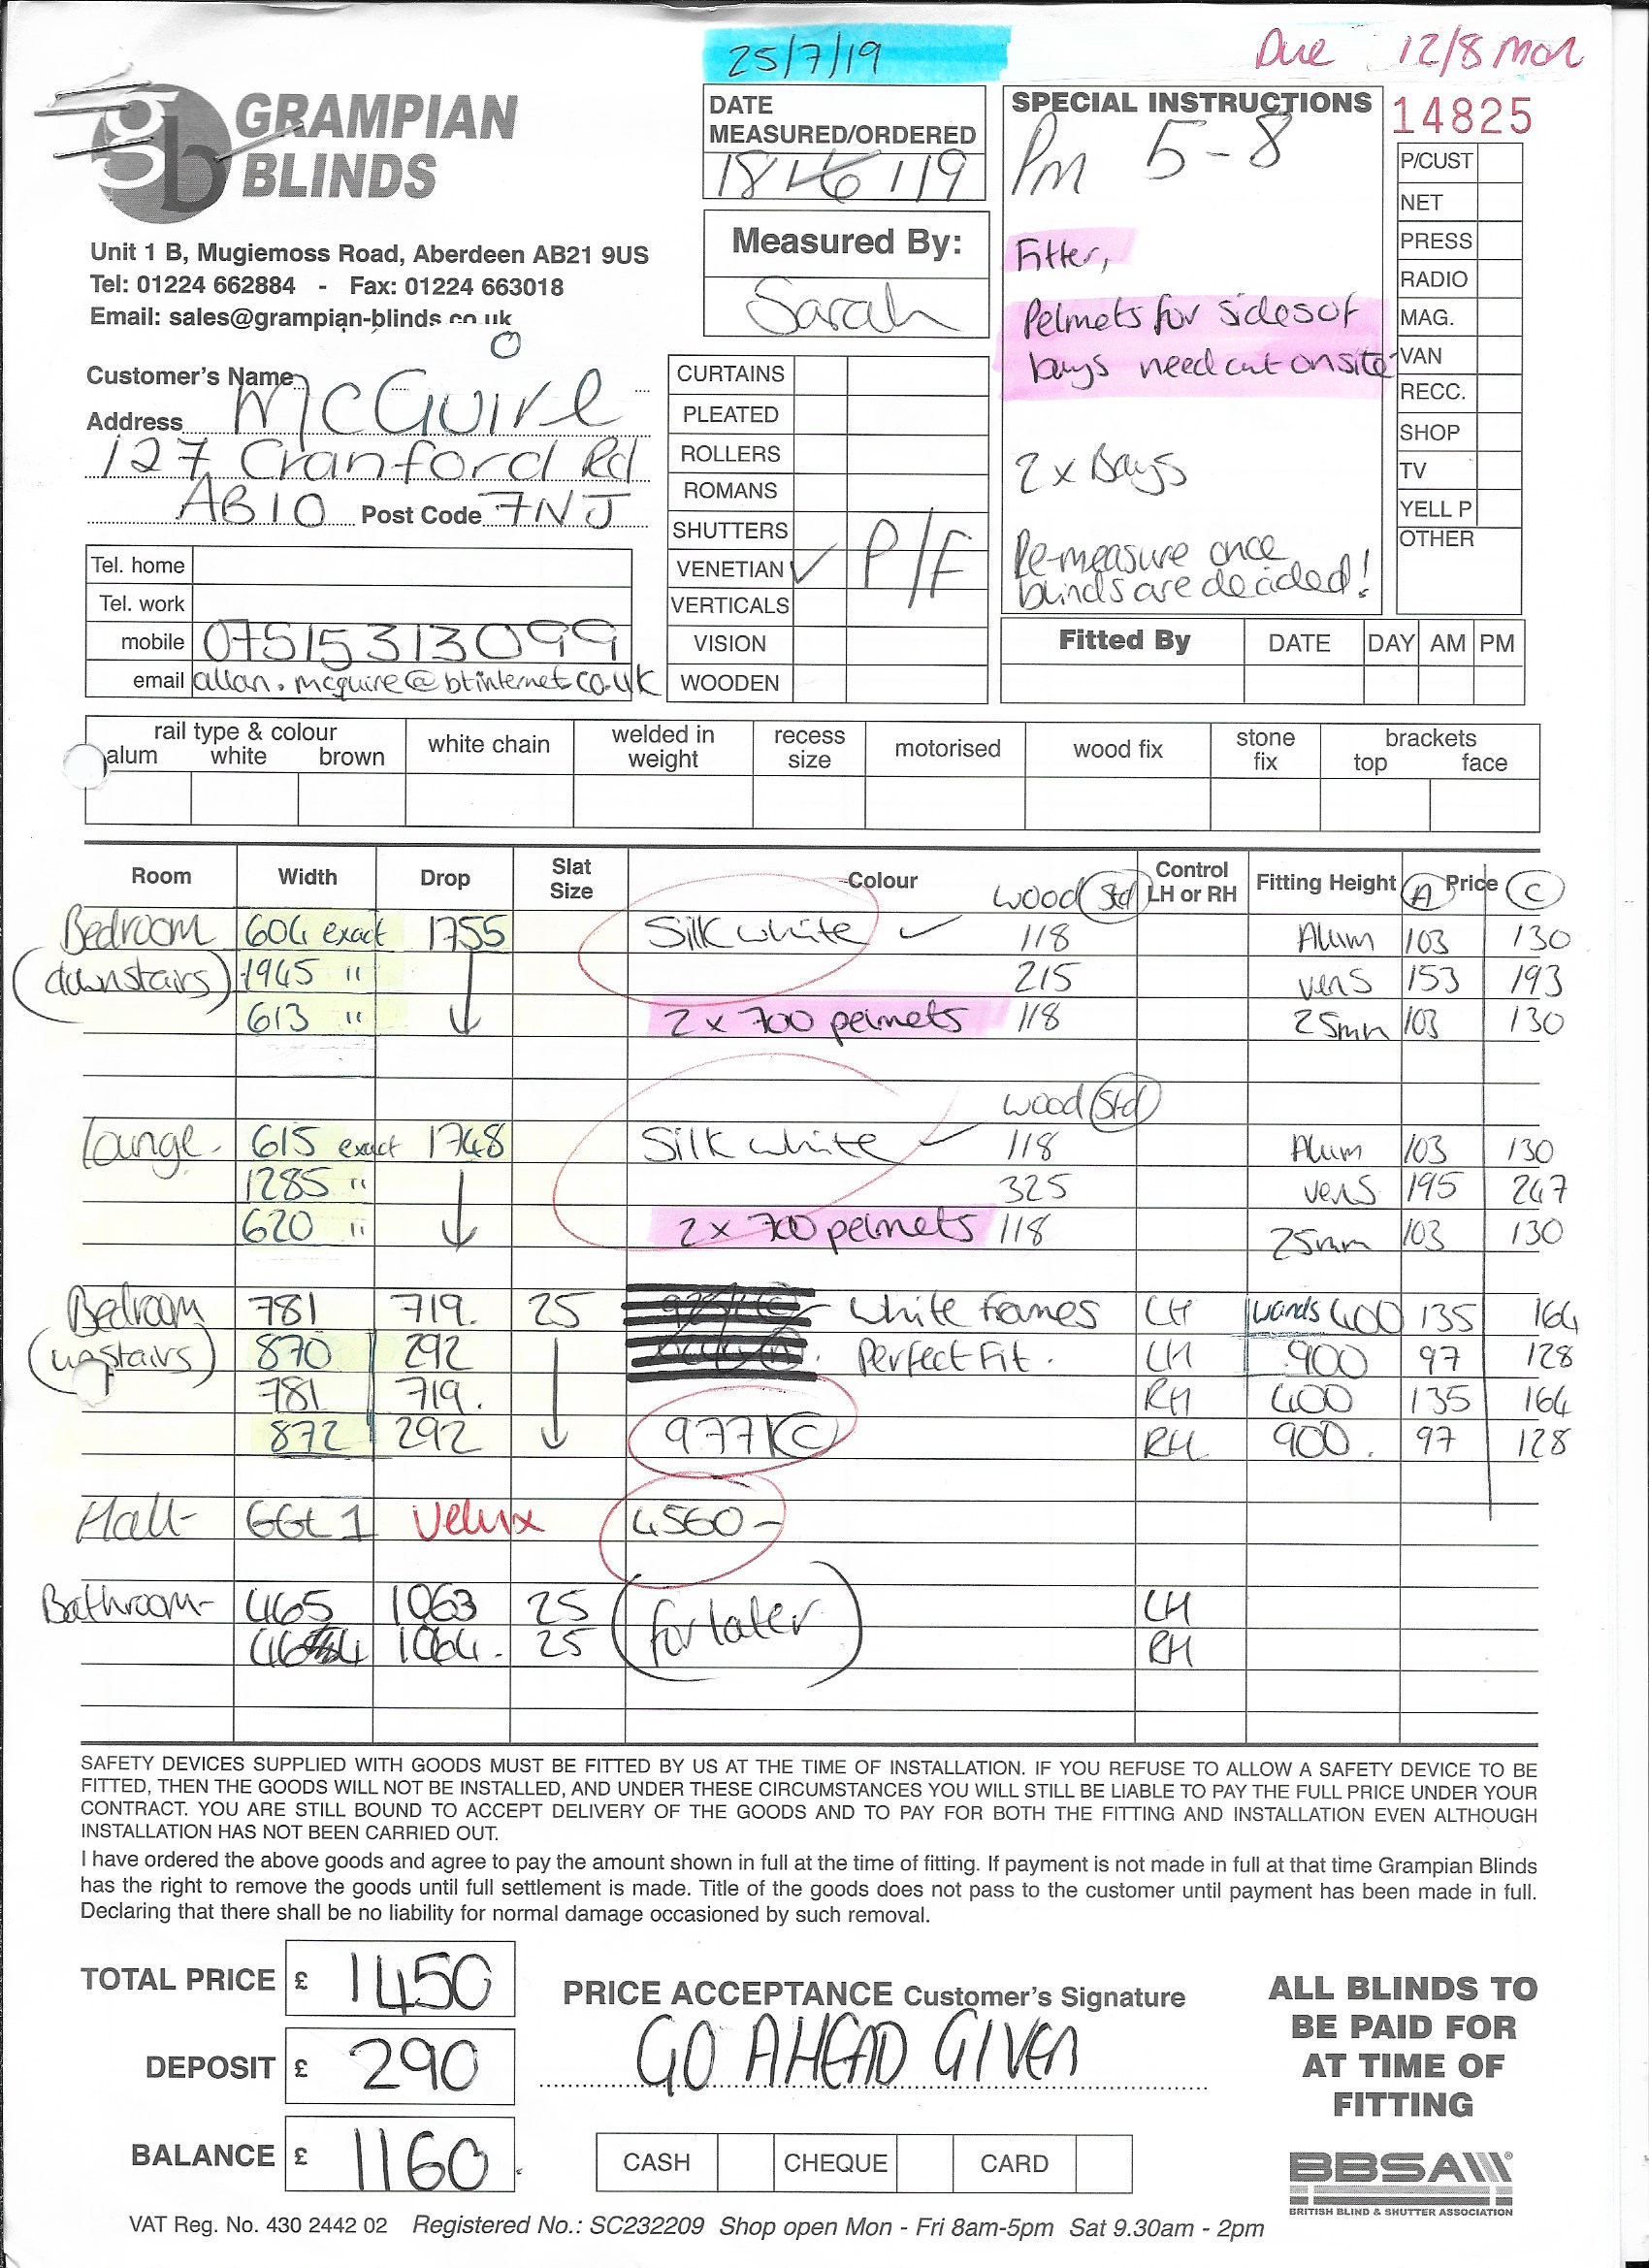 25/7/19
Due 12/8 Mon
GRAMPIAN
BLINDS
Unit 1 B, Mugiemoss Road, Aberdeen AB21 9US
Tel: 01224 662884 - Fax: 01224 663018
Email: sales@grampian-blinds.co.uk
DATE
MEASURED/ORDERED
18/6/19
Measured By:
Sarah
SPECIAL INSTRUCTIONS
Pm 5-8
Fitter,
Pelmets for sides of
bays need cut onsite
2 x Bays
Re-measure once
blinds are decided!
14825
P/CUST
NET
PRESS
RADIO
MAG.
VAN
RECC.
SHOP
TV
YELL P
OTHER
Customer's Name McGuire
Address
127 Cranford Rd
AB10 Post Code 7NJ
Tel. home
Tel. work
mobile 07515313099
email allan.mcguire@btinternet.co.uk
CURTAINS
PLEATED
ROLLERS
ROMANS
SHUTTERS
VENETIAN ✓ P/F
VERTICALS
VISION
WOODEN
Fitted By DATE DAY AM PM
rail type & colour
alum white brown
white chain
welded in
weight
recess
size
motorised
wood fix
stone
fix
brackets
top face
Room Width Drop Slat Size Colour wood Std Control LH or RH Fitting Height A Price C
Bedroom 604 exact 1755 Silk white ✓ 118 Alum 103 130
downstairs 1945 " 215 vens 153 193
613 " 2 x 700 pelmets 118 25mm 103 130
wood Std
Lounge 615 exact 1748 Silk white ✓ 118 Alum 103 130
1285 " 325 vens 195 247
620 " 2 x 700 pelmets 118 25mm 103 130
Bedroom 781 719. 25 White frames LH wands 400 135 164
upstairs 870 292 Perfect Fit. LH 900 97 128
781 719. RH 400 135 164
872 292 977K C RH 900. 97 128
Hall- GGL 1 Velux 4560-
Bathroom- 465 1063 25 (for later) LH
464 1064. 25 RH
SAFETY DEVICES SUPPLIED WITH GOODS MUST BE FITTED BY US AT THE TIME OF INSTALLATION. IF YOU REFUSE TO ALLOW A SAFETY DEVICE TO BE
FITTED, THEN THE GOODS WILL NOT BE INSTALLED, AND UNDER THESE CIRCUMSTANCES YOU WILL STILL BE LIABLE TO PAY THE FULL PRICE UNDER YOUR
CONTRACT. YOU ARE STILL BOUND TO ACCEPT DELIVERY OF THE GOODS AND TO PAY FOR BOTH THE FITTING AND INSTALLATION EVEN ALTHOUGH
INSTALLATION HAS NOT BEEN CARRIED OUT.
I have ordered the above goods and agree to pay the amount shown in full at the time of fitting. If payment is not made in full at that time Grampian Blinds
has the right to remove the goods until full settlement is made. Title of the goods does not pass to the customer until payment has been made in full.
Declaring that there shall be no liability for normal damage occasioned by such removal.
TOTAL PRICE £ 1450
DEPOSIT £ 290
BALANCE £ 1160
PRICE ACCEPTANCE Customer's Signature
GO AHEAD GIVEN
CASH CHEQUE CARD
ALL BLINDS TO
BE PAID FOR
AT TIME OF
FITTING
BBSA
BRITISH BLIND & SHUTTER ASSOCIATION
VAT Reg. No. 430 2442 02 Registered No.: SC232209 Shop open Mon - Fri 8am-5pm Sat 9.30am - 2pm